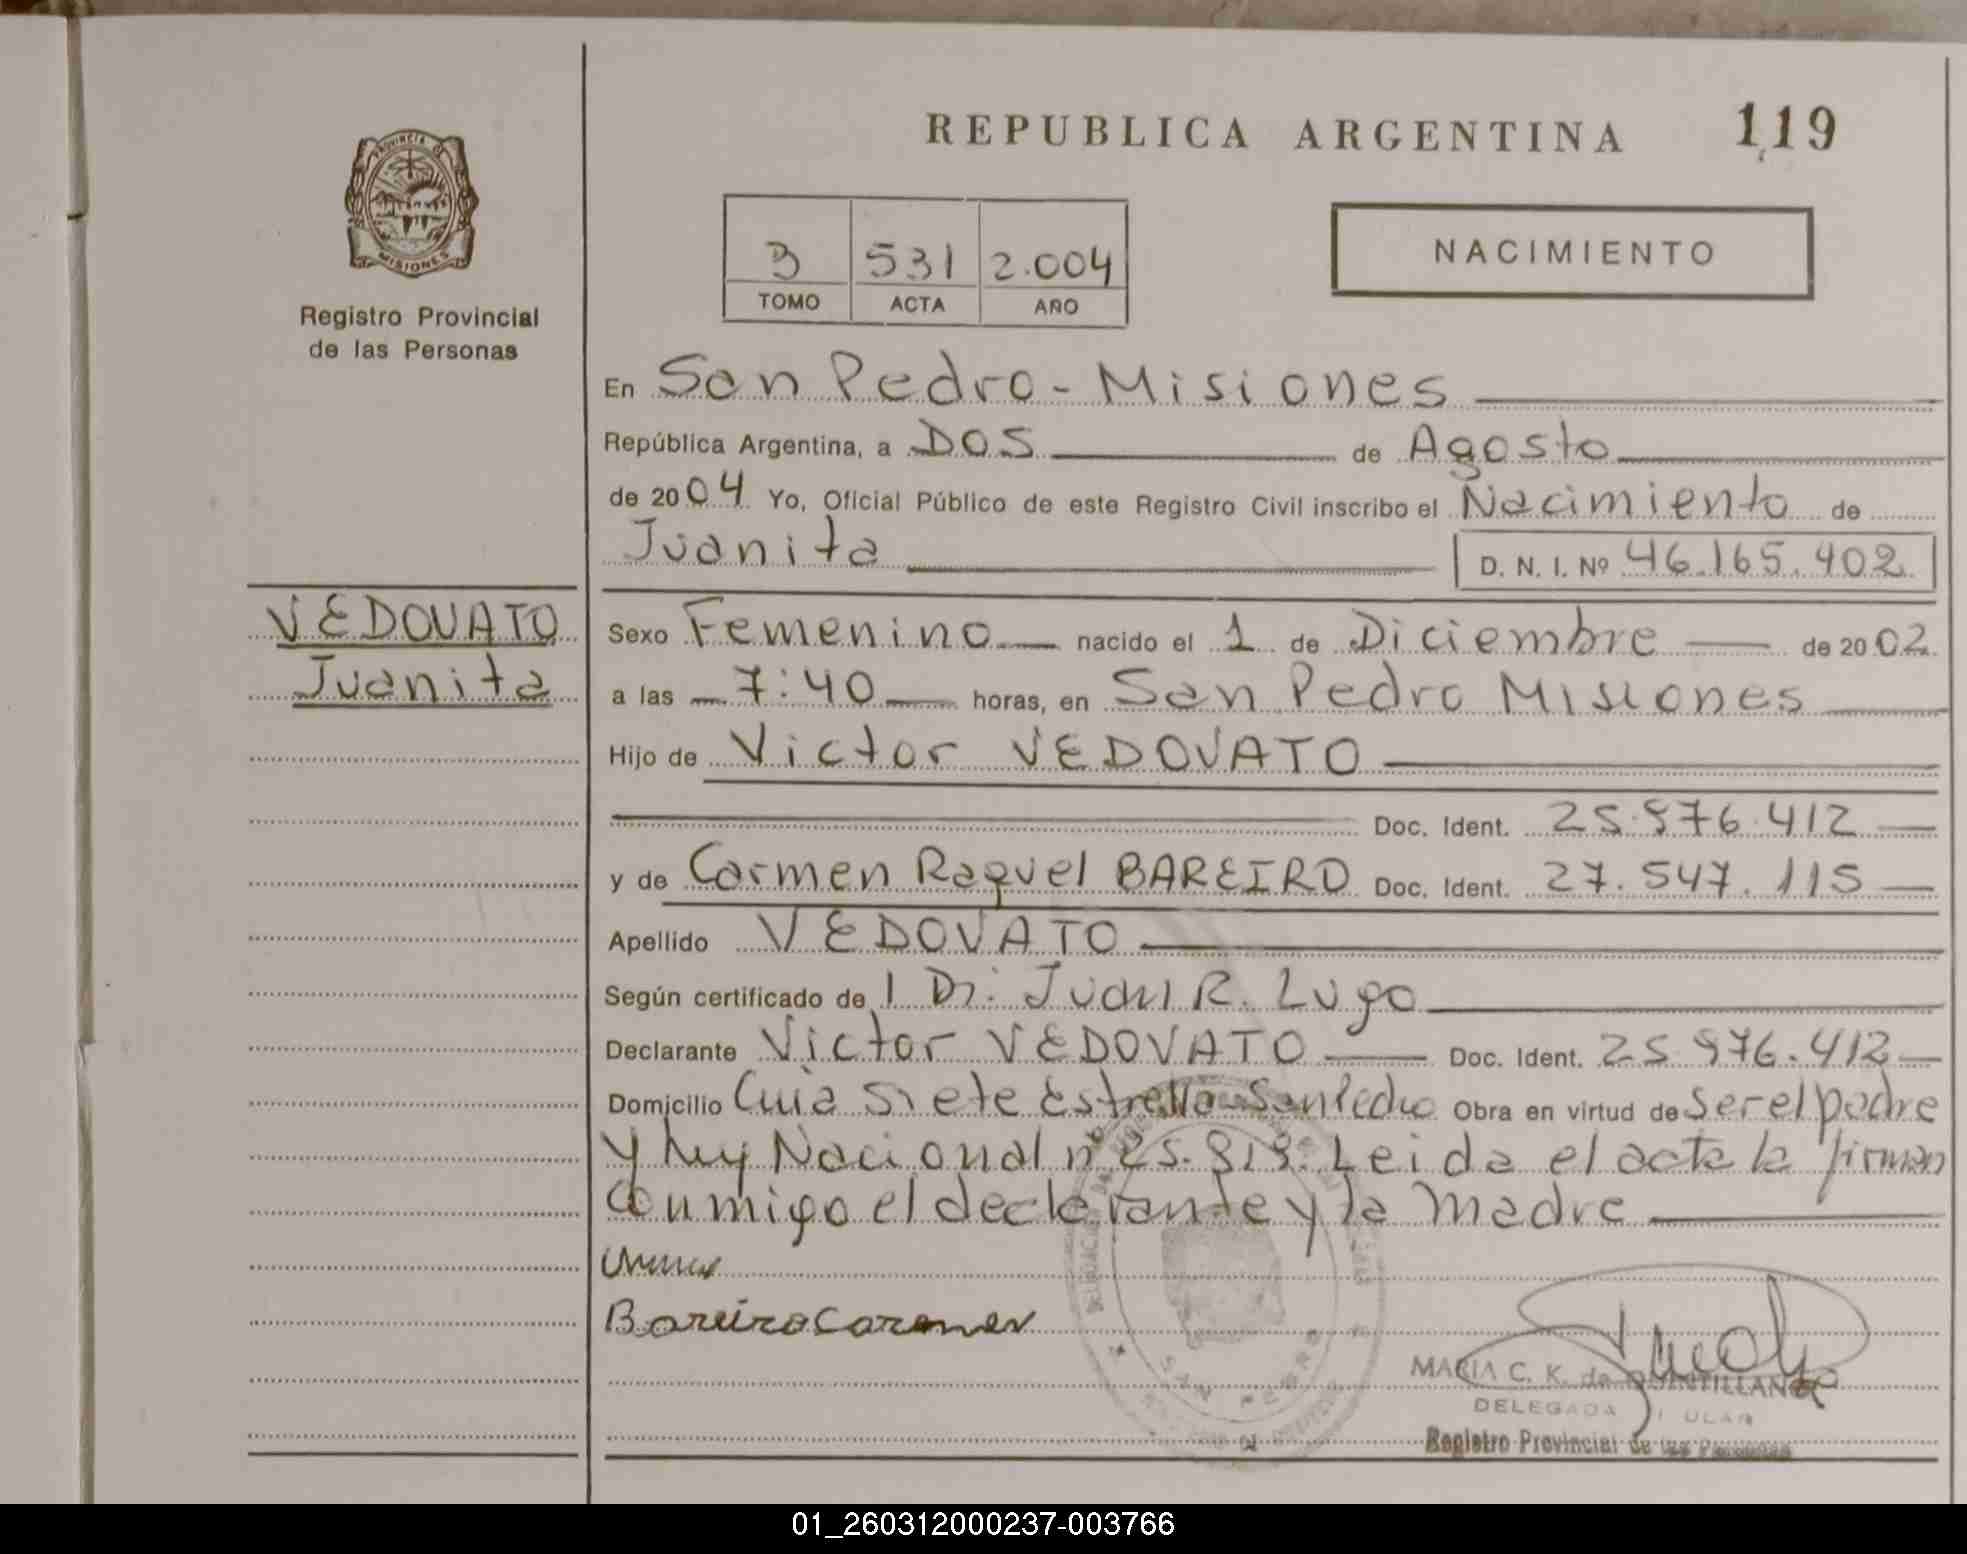 REPUBLICA ARGENTINA 119
PROVINCIA DE
MISIONES
Registro Provincial
de las Personas
3 531 2.004
TOMO ACTA AÑO
NACIMIENTO
En San Pedro - Misiones
República Argentina, a DOS de Agosto
de 2004 Yo, Oficial Público de este Registro Civil inscribo el Nacimiento de
Juanita D. N. I. Nº 46.165.402
VEDOVATO
Juanita
Sexo Femenino nacido el 1 de Diciembre de 2002
a las 7:40 horas, en San Pedro Misiones
Hijo de Victor VEDOVATO
Doc. Ident. 25.976.412
y de Carmen Raquel BAREIRO Doc. Ident. 27.547.115
Apellido VEDOVATO
Según certificado de Dr. Juan R. Lugo
Declarante Victor VEDOVATO Doc. Ident. 25.976.412
Domicilio Cuia Siete Estrella San Pedro Obra en virtud de Ser el padre
y Ley Nacional nº 25.819. Leida el acta la firman
conmigo el declarante y la madre
Bareiro Carmen
SAN PEDRO
MARIA C. K. de QUINTILLAN
DELEGADA TITULAR
Registro Provincial de las Personas
01_260312000237-003766